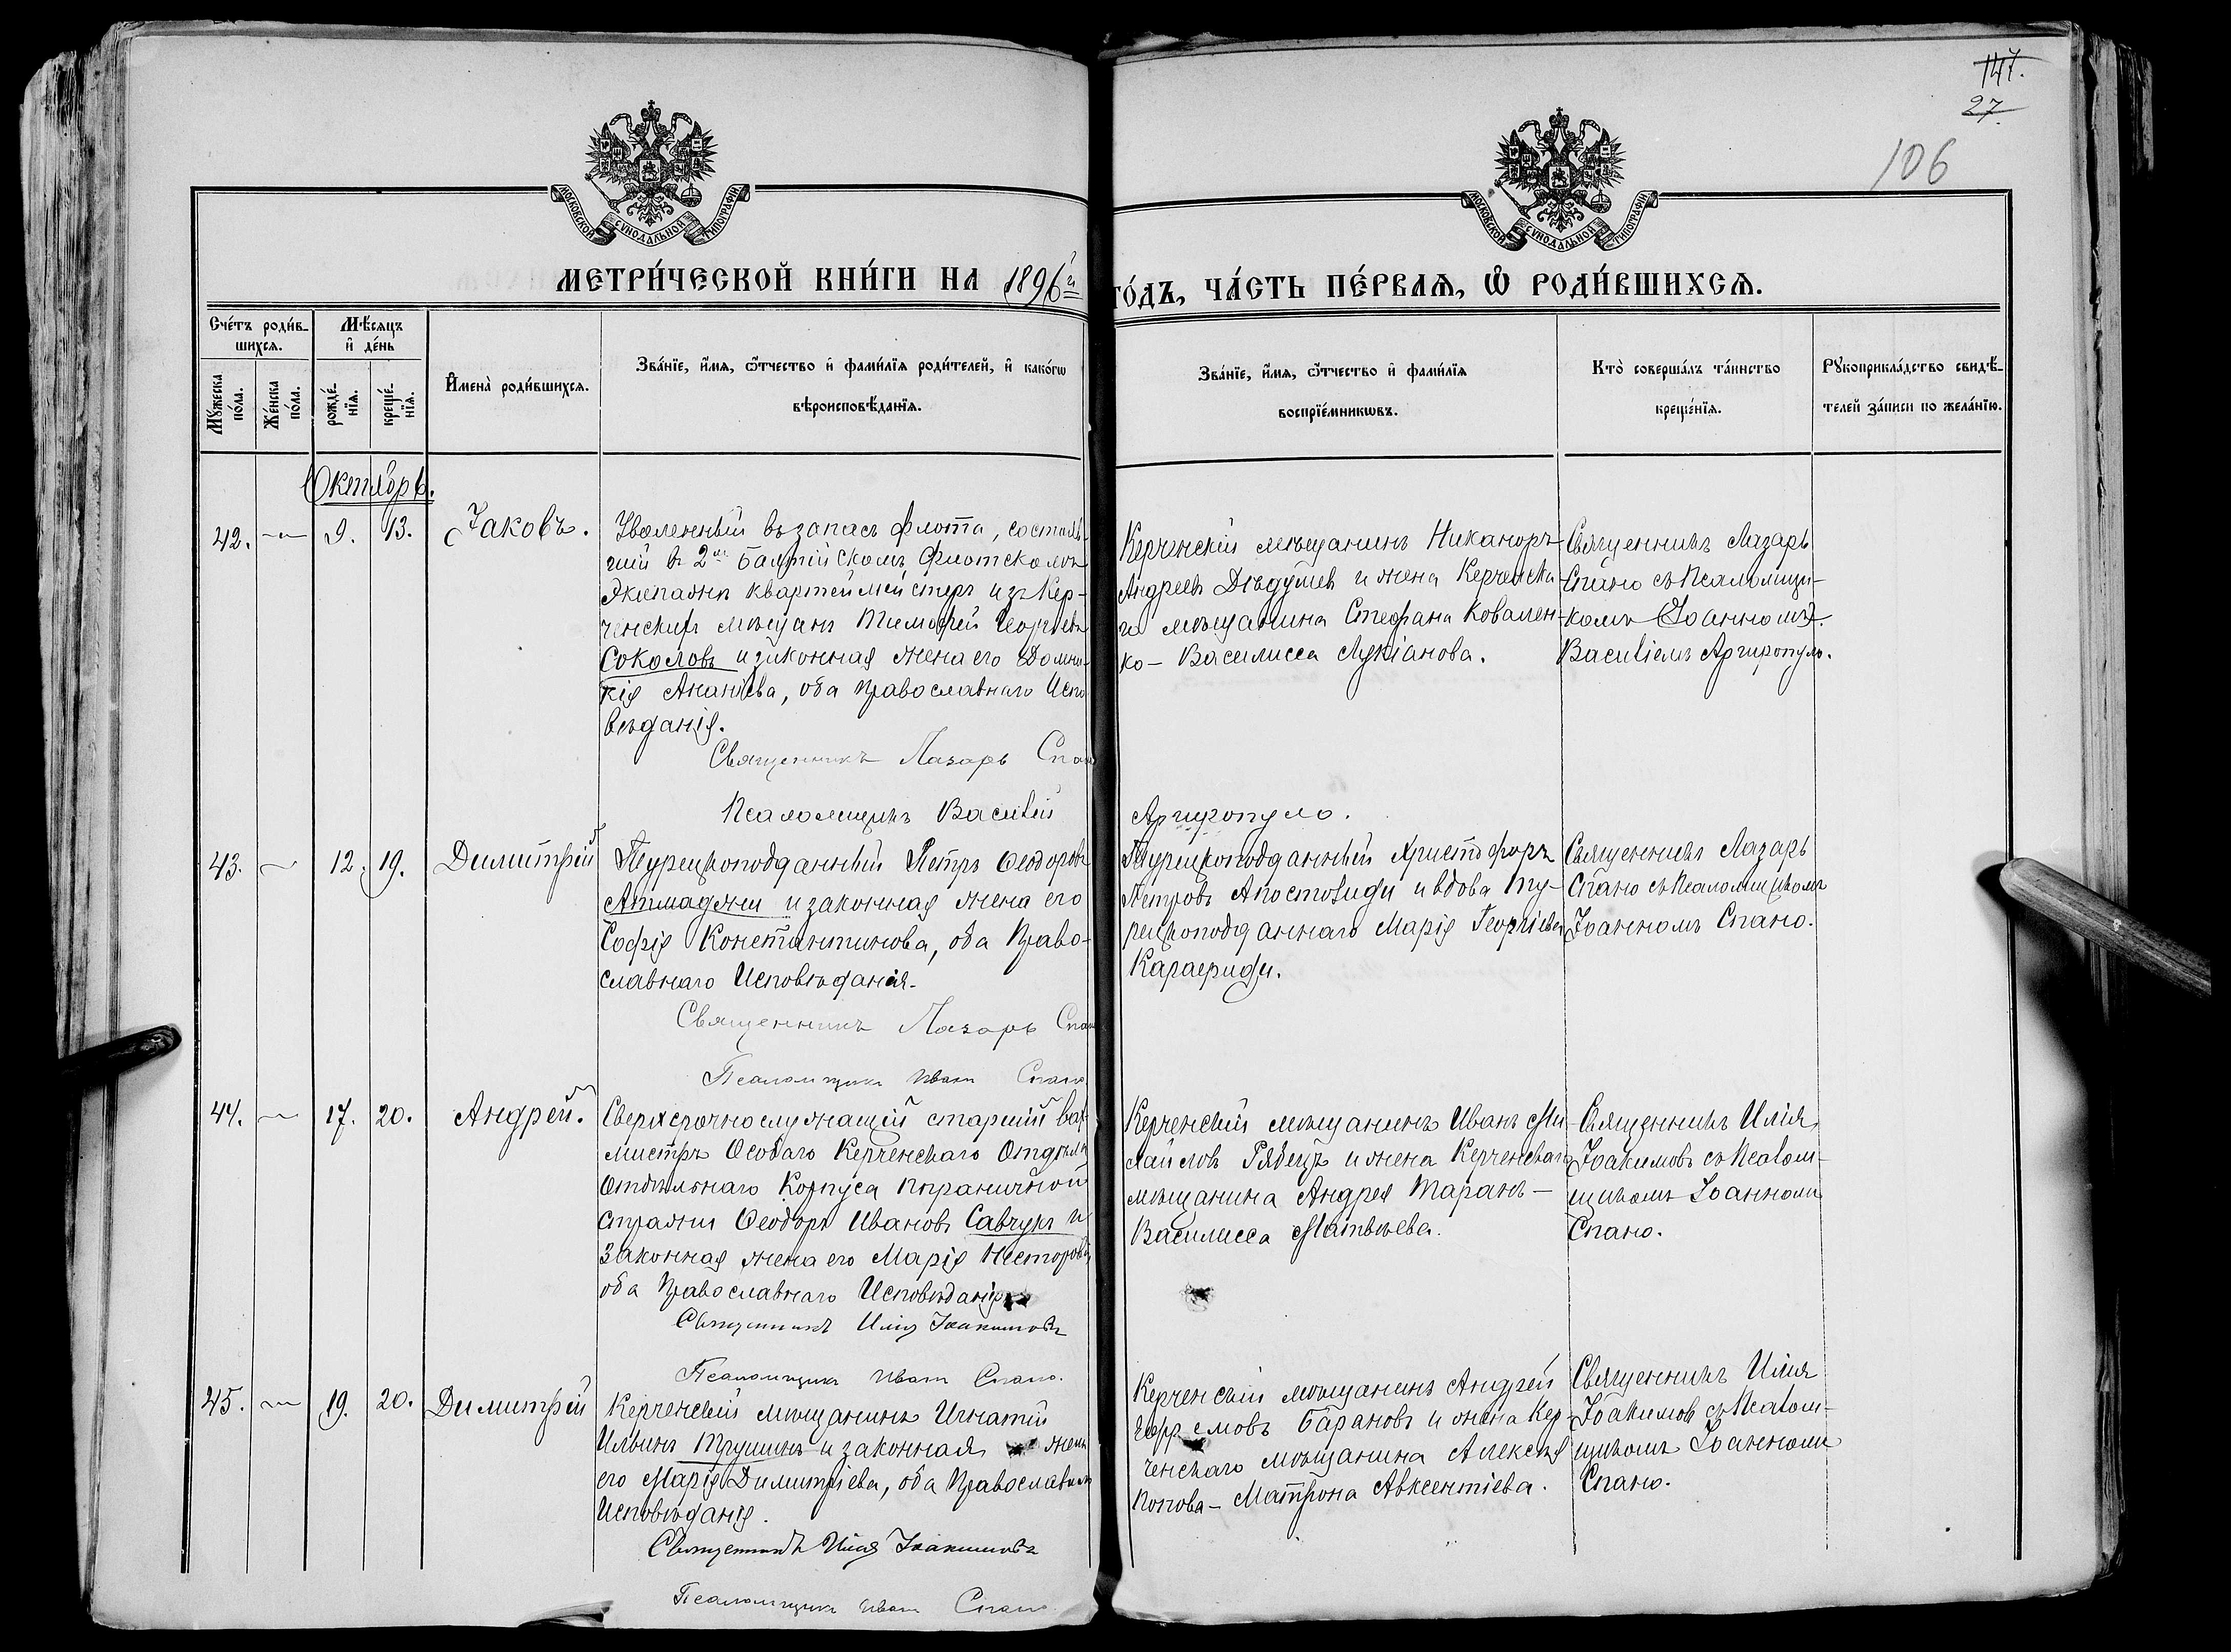 147.
27.
106
МОСКОВСКОЙ СѴНОДАЛЬНОЙ ТИПОГРАФИИ
МОСКОВСКОЙ СѴНОДАЛЬНОЙ ТИПОГРАФИИ
МЕТРИ́ЧЕСКОЙ КНИ́ГИ НА 1896й
ГО́ДЪ, ЧА́СТЬ ПЕ́РВАѦ, Ѡ҆ РОДИ́ВШИХСѦ.
Сче́тъ роди́в-
шихсѧ.
Мѣ́сяцъ
и҆ де́нь
Мꙋ́жеска
по́ла.
Же́нска
по́ла.
рожде́-
нїѧ.
креще́-
нїѧ.
И҆мена̀ роди́вшихсѧ.
Зва́нїе, и҆́мѧ, ѻ҆́тчество и҆ фами́лїѧ роди́телей, и҆ како́гѡ
вѣроисповѣ́данїѧ.
Зва́нїе, и҆́мѧ, ѻ҆́тчество и҆ фами́лїѧ
воспрїе́мникѡвъ.
Кто̀ соверша́лъ та́инство
креще́нїѧ.
Рꙋкоприкла́дство свидѣ́-
телей за́писи по жела́нїю.
Октябрь.
42. — 9. 13. Іаковъ.
Уволенный въ запасъ флота, состояв-
шій въ 2м Балтійскомъ Флотскомъ
Экипажѣ квартеймейстеръ изъ Кер-
ченскихъ мѣщанъ Тимофей Георгіевъ
Соколовъ и законная жена его Домни-
кія Ананіева, оба православнаго Испо-
вѣданія.
Священникъ Лазарь Спано
Псаломщикъ Василій
Аргиропуло.
Керченскій мѣщанинъ Никаноръ
Андреевъ Дѣдушев и жена Керченска-
го мѣщанина Стефана Ковален-
ко — Василисса Лукіанова.
Священникъ Лазарь
Спано съ Псаломщи-
комъ (Іоанномъ).
Василіемъ Аргиропуло.
43. — 12. 19. Димитрій
Турецкоподданный Петръ Ѳеодоровъ
Атмаджи и законная жена его
Софія Константинова, оба Право-
славнаго Исповѣданія.
Священникъ Лазарь Спано
Псаломщикъ Иван Спано
Турецкоподданный Христофоръ
Петровъ Апостолиди и вдова Ту-
рецкоподданнаго Марія Георгіева
Караериди.
Священникъ Лазарь
Спано съ Псаломщикомъ
Іоанномъ Спано.
44. — 17. 20. Андрей.
Сверхсрочнослужащій старшій вах-
мистръ Особаго Керченскаго Отдѣла
Отдѣльнаго Корпуса Пограничной
стражи Ѳеодоръ Ивановъ Савчукъ и
Законная жена его Марія Несторова,
оба Православнаго Исповѣданія
Священникъ Илія Іоакимовъ
Псаломщикъ Иван Спано.
Керченскій мѣщанинъ Иванъ Ми-
хайловъ Рябецъ и жена Керченскаго
мѣщанина Андрея Таранъ —
Василисса Матвѣева.
Священникъ Илія
Іоакимовъ съ Псалом-
щикомъ Іоанномъ
Спано.
45. — 19. 20. Димитрій
Керченскій мѣщанинъ Игнатій
Ильинъ Трушинъ и законная жена
его Марія Димитріева, оба Православнаго
Исповѣданія.
Священникъ Илія Іоакимовъ
Псаломщикъ Иван Спано
Керченскій мѣщанинъ Андрей
Ефремовъ Барановъ и жена Кер-
ченскаго мѣщанина Алексѣя
Попова — Матрона Авксентіева.
Священникъ Илія
Іоакимов съ Псалом-
щикомъ Іоанномъ
Спано.